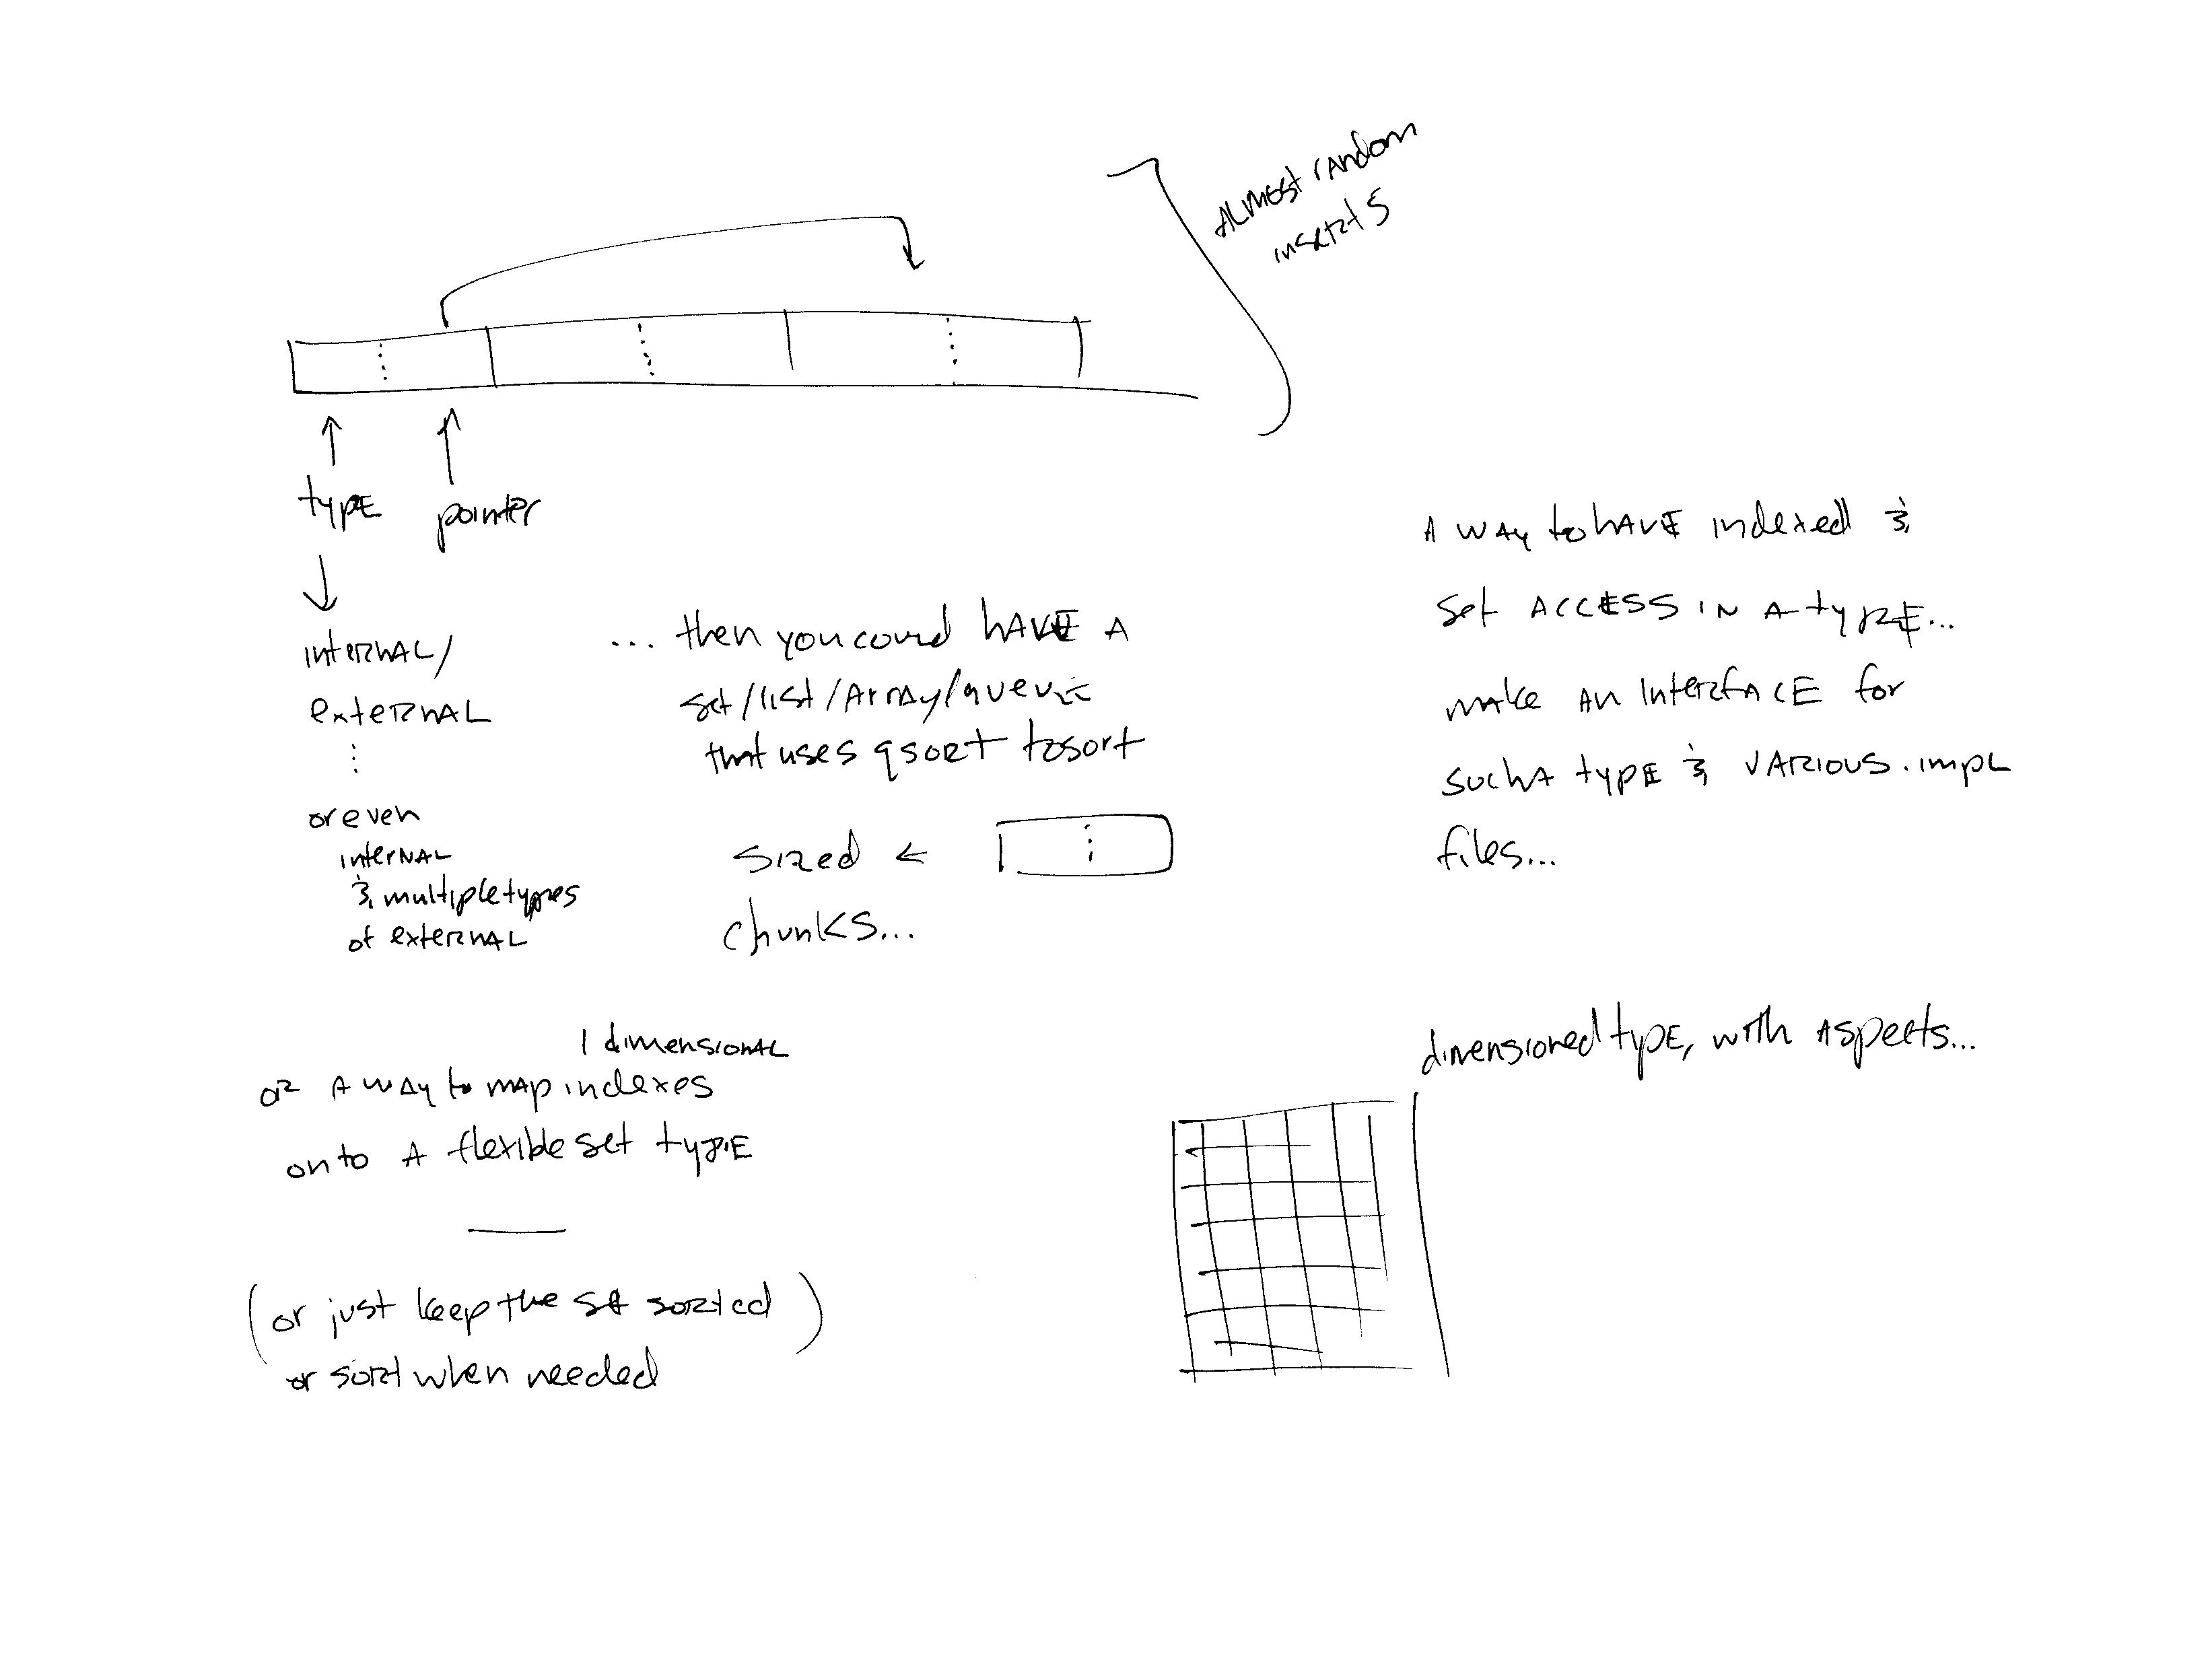 ALMOST random
inserts
type
pointer
internal/
external
or even
internal
& multiple types
of external
... then you could HAVE A
set/list/Array/queue
that uses qsort to sort
sized ←
chunks...
A WAY to HAVE indexed &
set ACCESS IN A type...
make AN INTERFACE for
such A type & VARIOUS .impl
files...
1 dimensional
or A WAY to map indexes
onto A flexible set type
(or just keep the set sorted)
or sort when needed
dimensioned type, with Aspects...